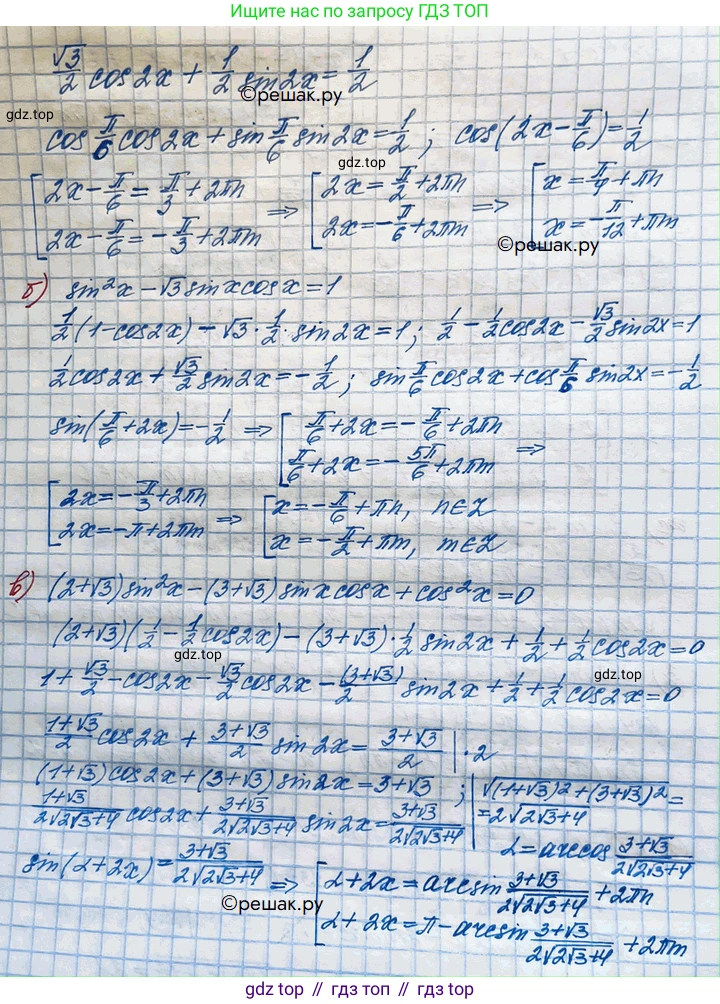 Ищите нас по запросу ГДЗ ТОП
√3/2 cos2x + 1/2 sin2x = 1/2
©решак.ру
gdz.top
cos π/6 cos2x + sin π/6 sin2x = 1/2 ; cos(2x - π/6) = 1/2
gdz.top
[ 2x - π/6 = π/3 + 2πn ⇒ [ 2x = π/2 + 2πn ⇒ [ x = π/4 + πn
2x - π/6 = -π/3 + 2πm 2x = -π/6 + 2πm x = -π/12 + πm
©решак.ру
б) sin²x - √3 sinx cosx = 1
1/2 (1 - cos2x) - √3 · 1/2 · sin2x = 1 ; 1/2 - 1/2 cos2x - √3/2 sin2x = 1
1/2 cos2x + √3/2 sin2x = -1/2 ; sin π/6 cos2x + cos π/6 sin2x = -1/2
sin(π/6 + 2x) = -1/2 ⇒ [ π/6 + 2x = -π/6 + 2πn
π/6 + 2x = -5π/6 + 2πm ⇒
[ 2x = -π/3 + 2πn ⇒ [ x = -π/6 + πn, n∈Z
2x = -π + 2πm x = -π/2 + πm, m∈Z
в) (2+√3) sin²x - (3+√3) sinx cosx + cos²x = 0
(2+√3)(1/2 - 1/2 cos2x) - (3+√3) · 1/2 sin2x + 1/2 + 1/2 cos2x = 0
gdz.top
gdz.top
1 + √3/2 - cos2x - √3/2 cos2x - (3+√3)/2 sin2x + 1/2 + 1/2 cos2x = 0
(1+√3)/2 cos2x + (3+√3)/2 sin2x = (3+√3)/2 | · 2
(1+√3) cos2x + (3+√3) sin2x = 3+√3 ; | √((1+√3)2 + (3+√3)2) =
(1+√3)/(2√(2√3+4)) cos2x + (3+√3)/(2√(2√3+4)) sin2x = (3+√3)/(2√(2√3+4)) | = 2√(2√3+4)
α = arccos (3+√3)/(2√(2√3+4))
sin(α + 2x) = (3+√3)/(2√(2√3+4)) ⇒ [ α + 2x = arcsin (3+√3)/(2√(2√3+4)) + 2πn
α + 2x = π - arcsin (3+√3)/(2√(2√3+4)) + 2πm
©решак.ру
gdz.top // гдз топ // гдз.топ